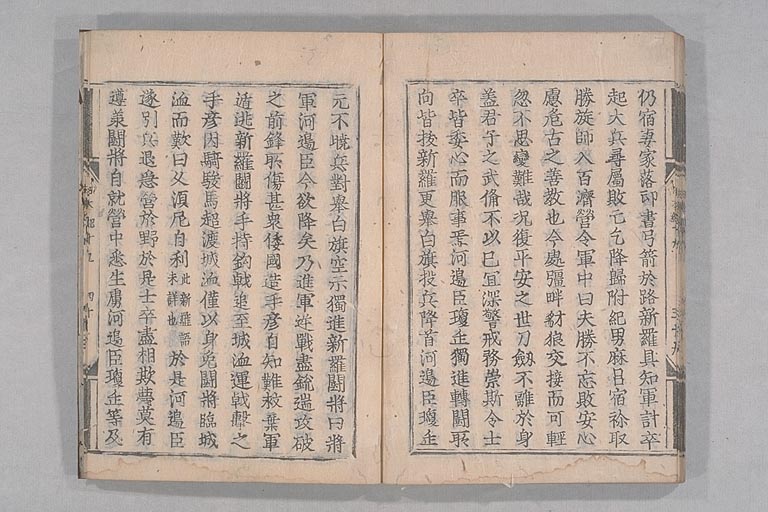 仍宿妻家落印書弓箭於路新羅具知軍計卒
起大兵尋属敗亡乞降歸附紀男麻呂宿祢取
勝旋師入百濟營令軍中曰夫勝不忘敗安必
慮危古之善教也今處彊畔豺狼交接而可輕
忽不思變難哉况復平安之世刀劔不離於身
盖君子之武備不以已冝深警戒務崇斯令士
卒皆委心而服事焉河邉臣瓊缶獨進轉闘所
向皆拔新羅更舉白旗投兵降首河邉臣瓊缶
元不曉兵對舉白旗空尓獨進新羅闘將曰將
軍河邉臣今欲降矣乃進軍逆戰盡銳遄攻破
之前鋒所傷甚衆倭國造手彦自知難救棄軍
遁逃新羅闘將手持鈎戟追至城洫運戟擊之
手彦因騎駿馬超渡城洫僅以身免闘將臨城
洫而歎曰久須尼自利此新羅語未詳也於是河邉臣
遂別兵退急營於野於是士卒盡相欺蔑莫有
遵䒭闘將自就營中悉生虜河邉臣瓊缶等及